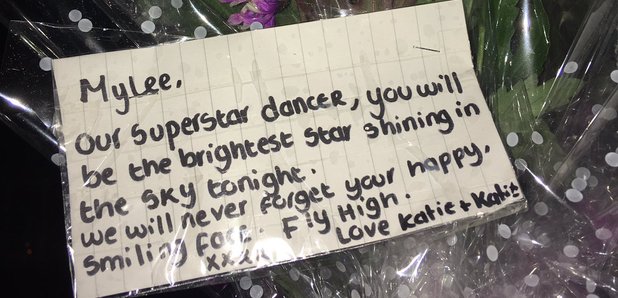 Mylee,
our superstar dancer, you will
be the brightest star shining in
the sky tonight.
we will never forget your happy,
smiling face. Fly High.
Love Katie + Katie
xxxx